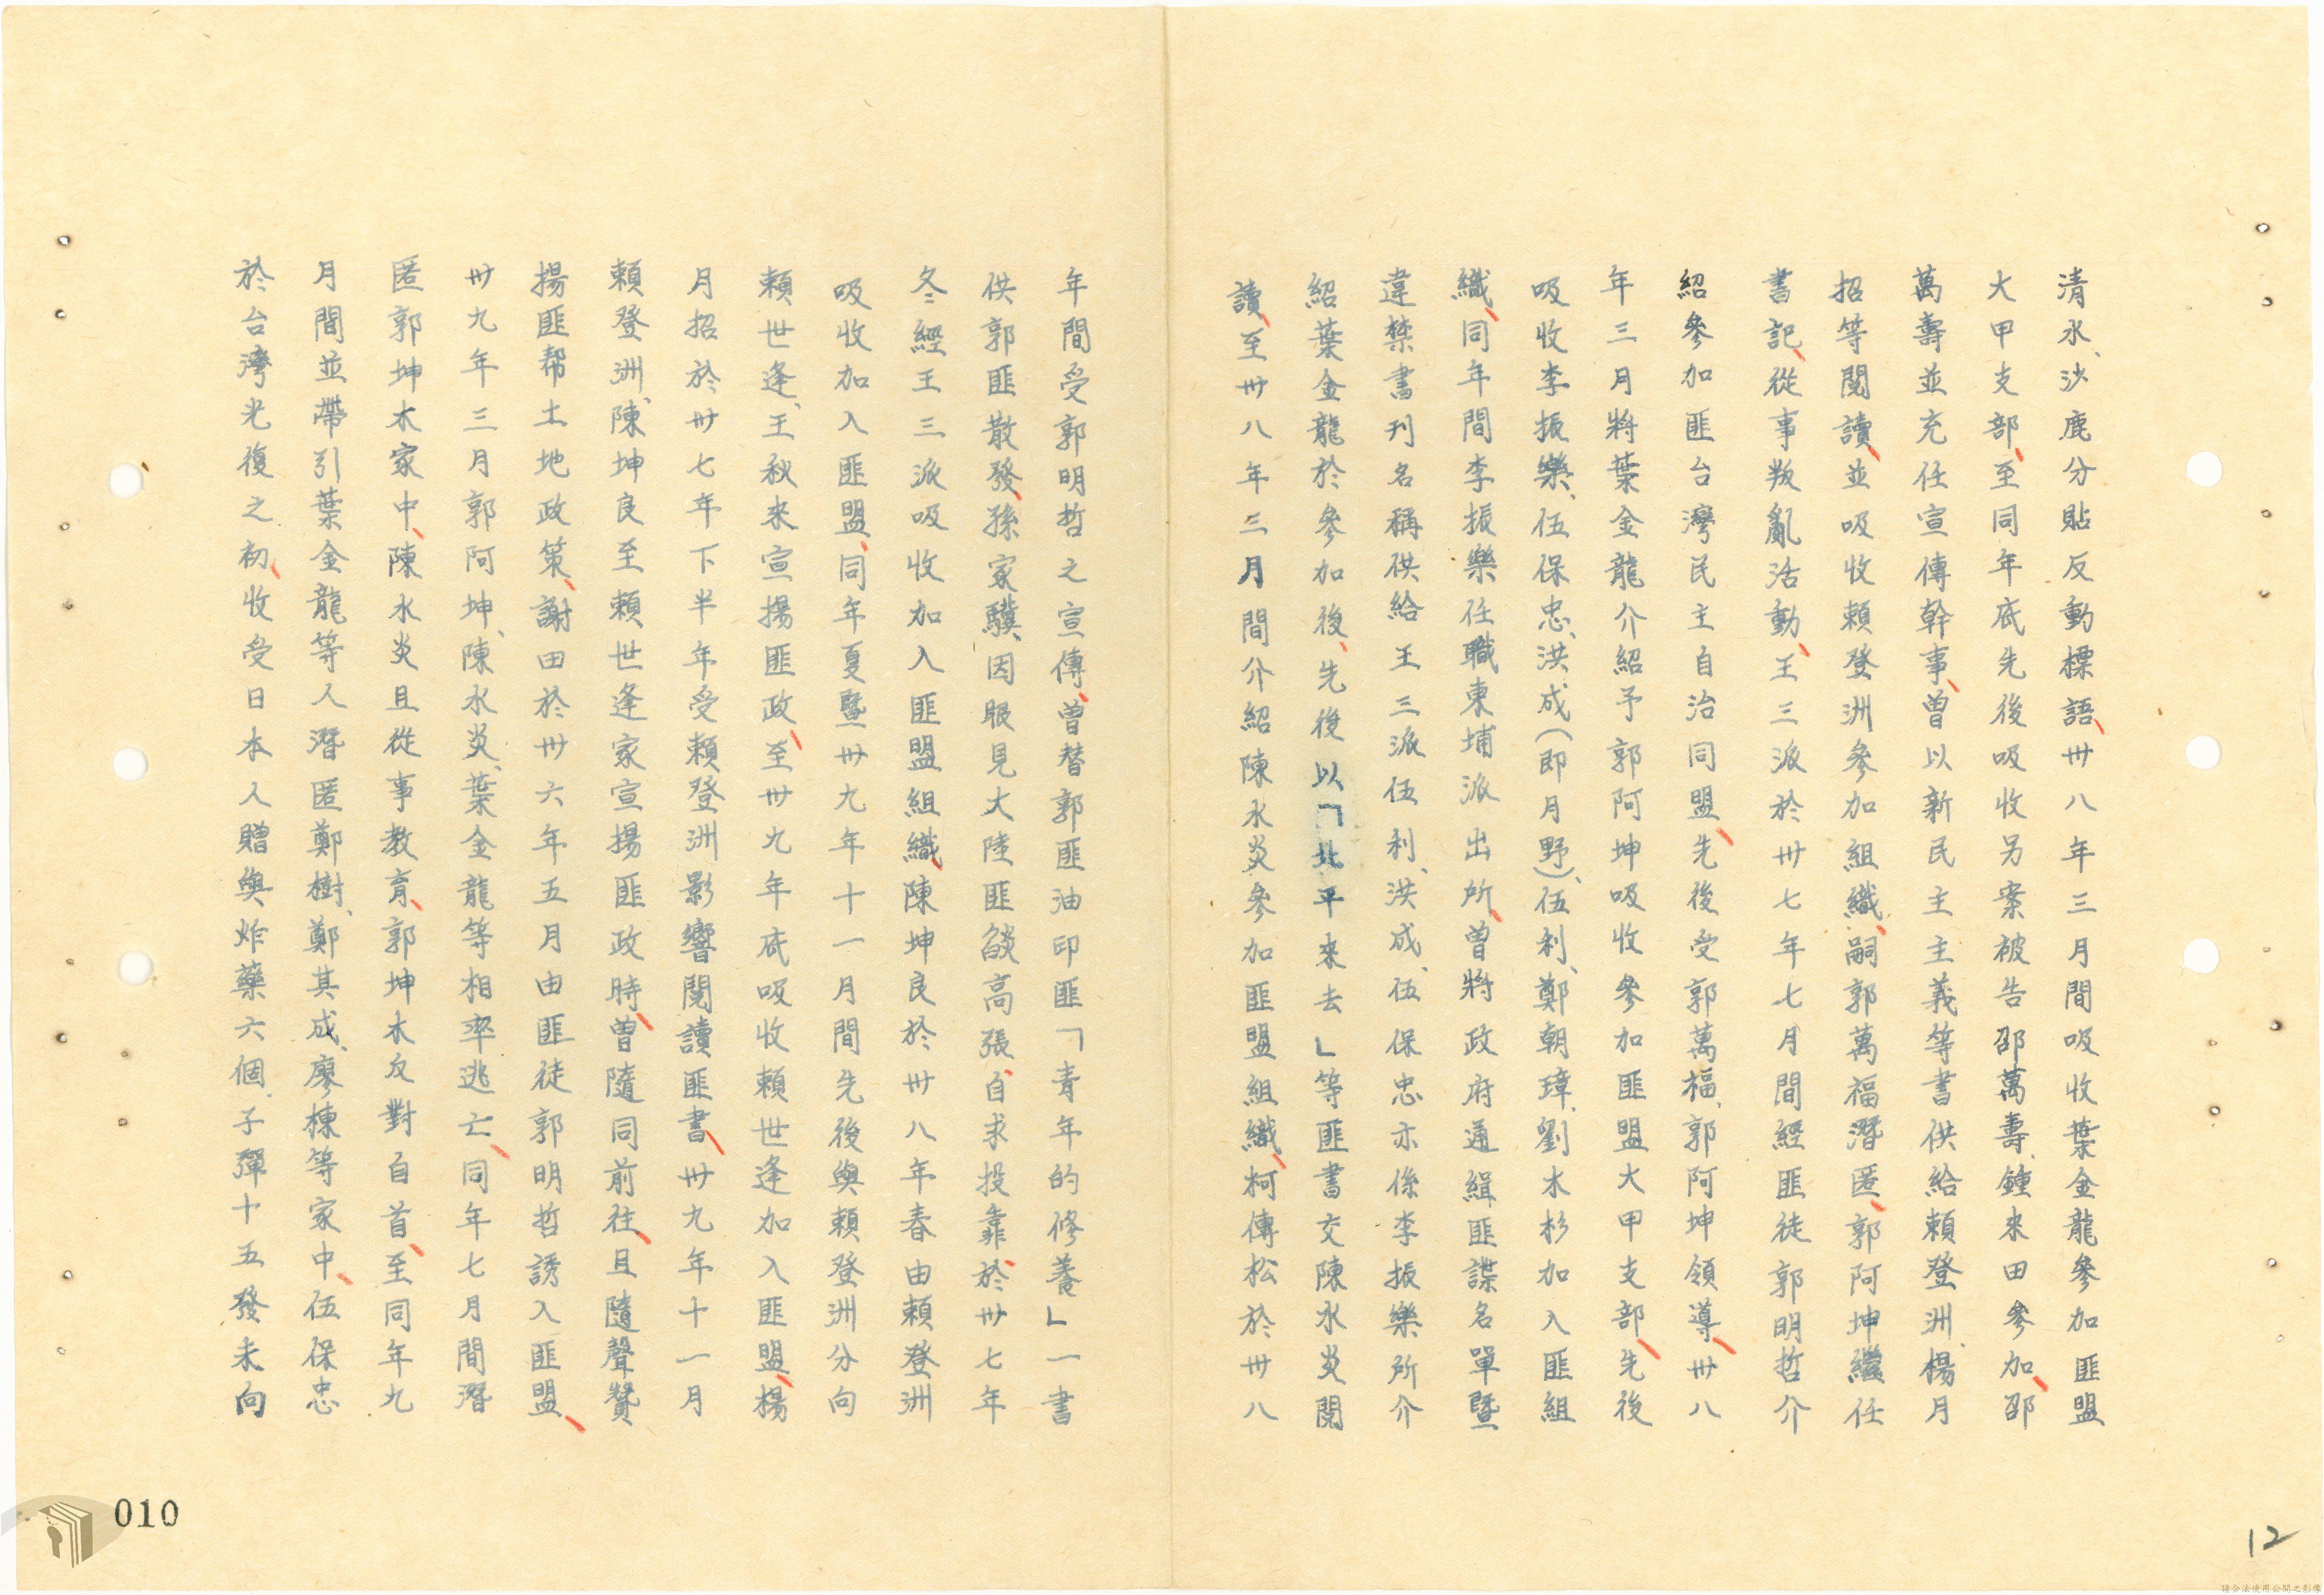 清水、沙鹿分貼反動標語、卅八年三月間吸收葉金龍參加匪盟
大甲支部、至同年底先後吸收另案被告邵萬壽、鍾來田參加、邵
萬壽並充任宣傳幹事、曾以新民主主義等書供給賴登洲、楊月
招等閱讀、並吸收賴登洲參加組織、嗣郭萬福潛匿、郭阿坤繼任
書記、從事叛亂活動、王三派於卅七年七月間經匪徒郭明哲介
紹參加匪台灣民主自治同盟、先後受郭萬福、郭阿坤領導、卅八
年三月將葉金龍介紹予郭阿坤吸收參加匪盟大甲支部、先後
吸收李振樂、伍保忠、洪成(即月野)、伍利、鄭朝璋、劉木杉加入匪組
織、同年間李振樂任職東埔派出所、曾將政府通緝匪諜名單暨
違禁書刊名稱供給王三派、伍利、洪成、伍保忠亦係李振樂所介
紹葉金龍於參加後、先後以「北平來去」等匪書交陳水炎閱
讀、至卅八年三月間介紹陳水炎參加匪盟組織、柯傳松於卅八
年間受郭明哲之宣傳、曾替郭匪油印匪「青年的修養」一書
供郭匪散發、孫家驥因眼見大陸匪燄高張、自求投靠、於卅七年
冬經王三派吸收加入匪盟組織、陳坤良於卅八年春由賴登洲
吸收加入匪盟、同年夏暨卅九年十一月間先後與賴登洲分向
賴世逢、王秋來宣揚匪政、至卅九年底吸收賴世逢加入匪盟、楊
月招於卅七年下半年受賴登洲影響閱讀匪書、卅九年十一月
賴登洲、陳坤良至賴世逢家宣揚匪政時、曾隨同前往、且隨聲贊
揚匪帮土地政策、謝田於卅六年五月由匪徒郭明哲誘入匪盟、
卅九年三月郭阿坤、陳水炎、葉金龍等相率逃亡、同年七月間潛
匿郭坤木家中、陳水炎且從事教育、郭坤木反對自首、至同年九
月間並帶引葉金龍等人潛匿鄭樹、鄭其成、廖棟等家中、伍保忠
於台灣光復之初、收受日本人贈與炸藥六個、子彈十五發未向
010
12
請合法使用公開之影像